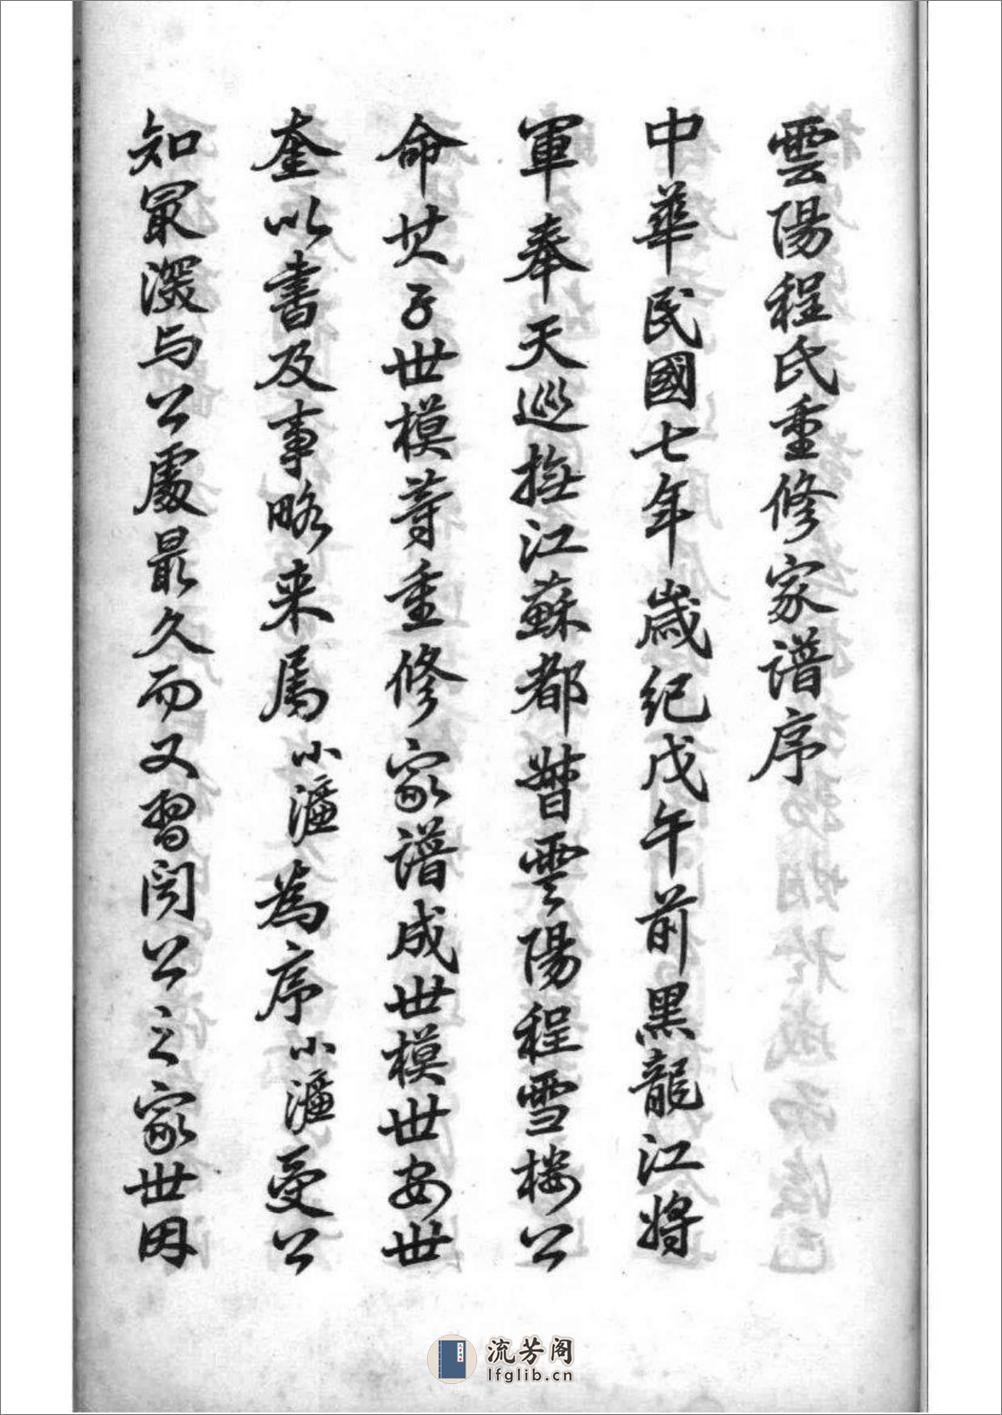 雲陽程氏重修家譜序
中華民國七年歲紀戊午前黑龍江將
軍奉天巡撫江蘇都督雲陽程雪樓公
命其子世模等重修家譜成世模世安世
奎以書及事略来属小瀛為序小瀛受公
知最深与公處最久而又習聞公之家世因
流芳阁
lfglib.cn